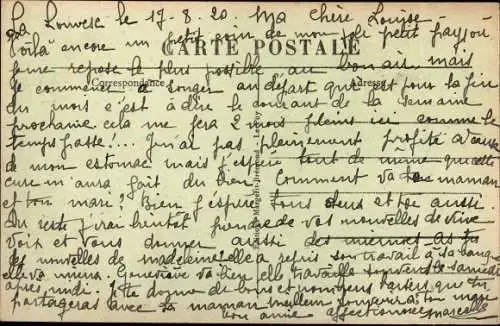 La Louvesc le 17-8-20 Ma chère Louise
Voilà encore un petit coin de mon joli petit pays où
CARTE POSTALE
je me repose le plus possible au bon air. mais
Correspondance
Adresse
je commence à songer au départ qui est pour la fin
du mois c'est à dire le courant de la semaine
prochaine cela me fera 2 mois pleins ici comme le
temps passe!... Je n'ai pas pleinement profité à cause
de mon estomac mais j'espère tout de même que cette
cure m'aura fait du bien. Comment va ta maman
et ton mari? Bien j'espère tous deux et toi aussi.
Du reste j'irai bientôt prendre de vos nouvelles de vive
voix et vous donner aussi des miennes. As tu
des nouvelles de Madeleine? elle a repris son travail à sa banque
elle va mieux. Geneviève va bien elle travaille souvent le samedi
après midi. Je te donne de bons et nombreux baisers que tu
partageras avec ta maman meilleur souvenir à ton mari
ton amie affectionnée Marcelle